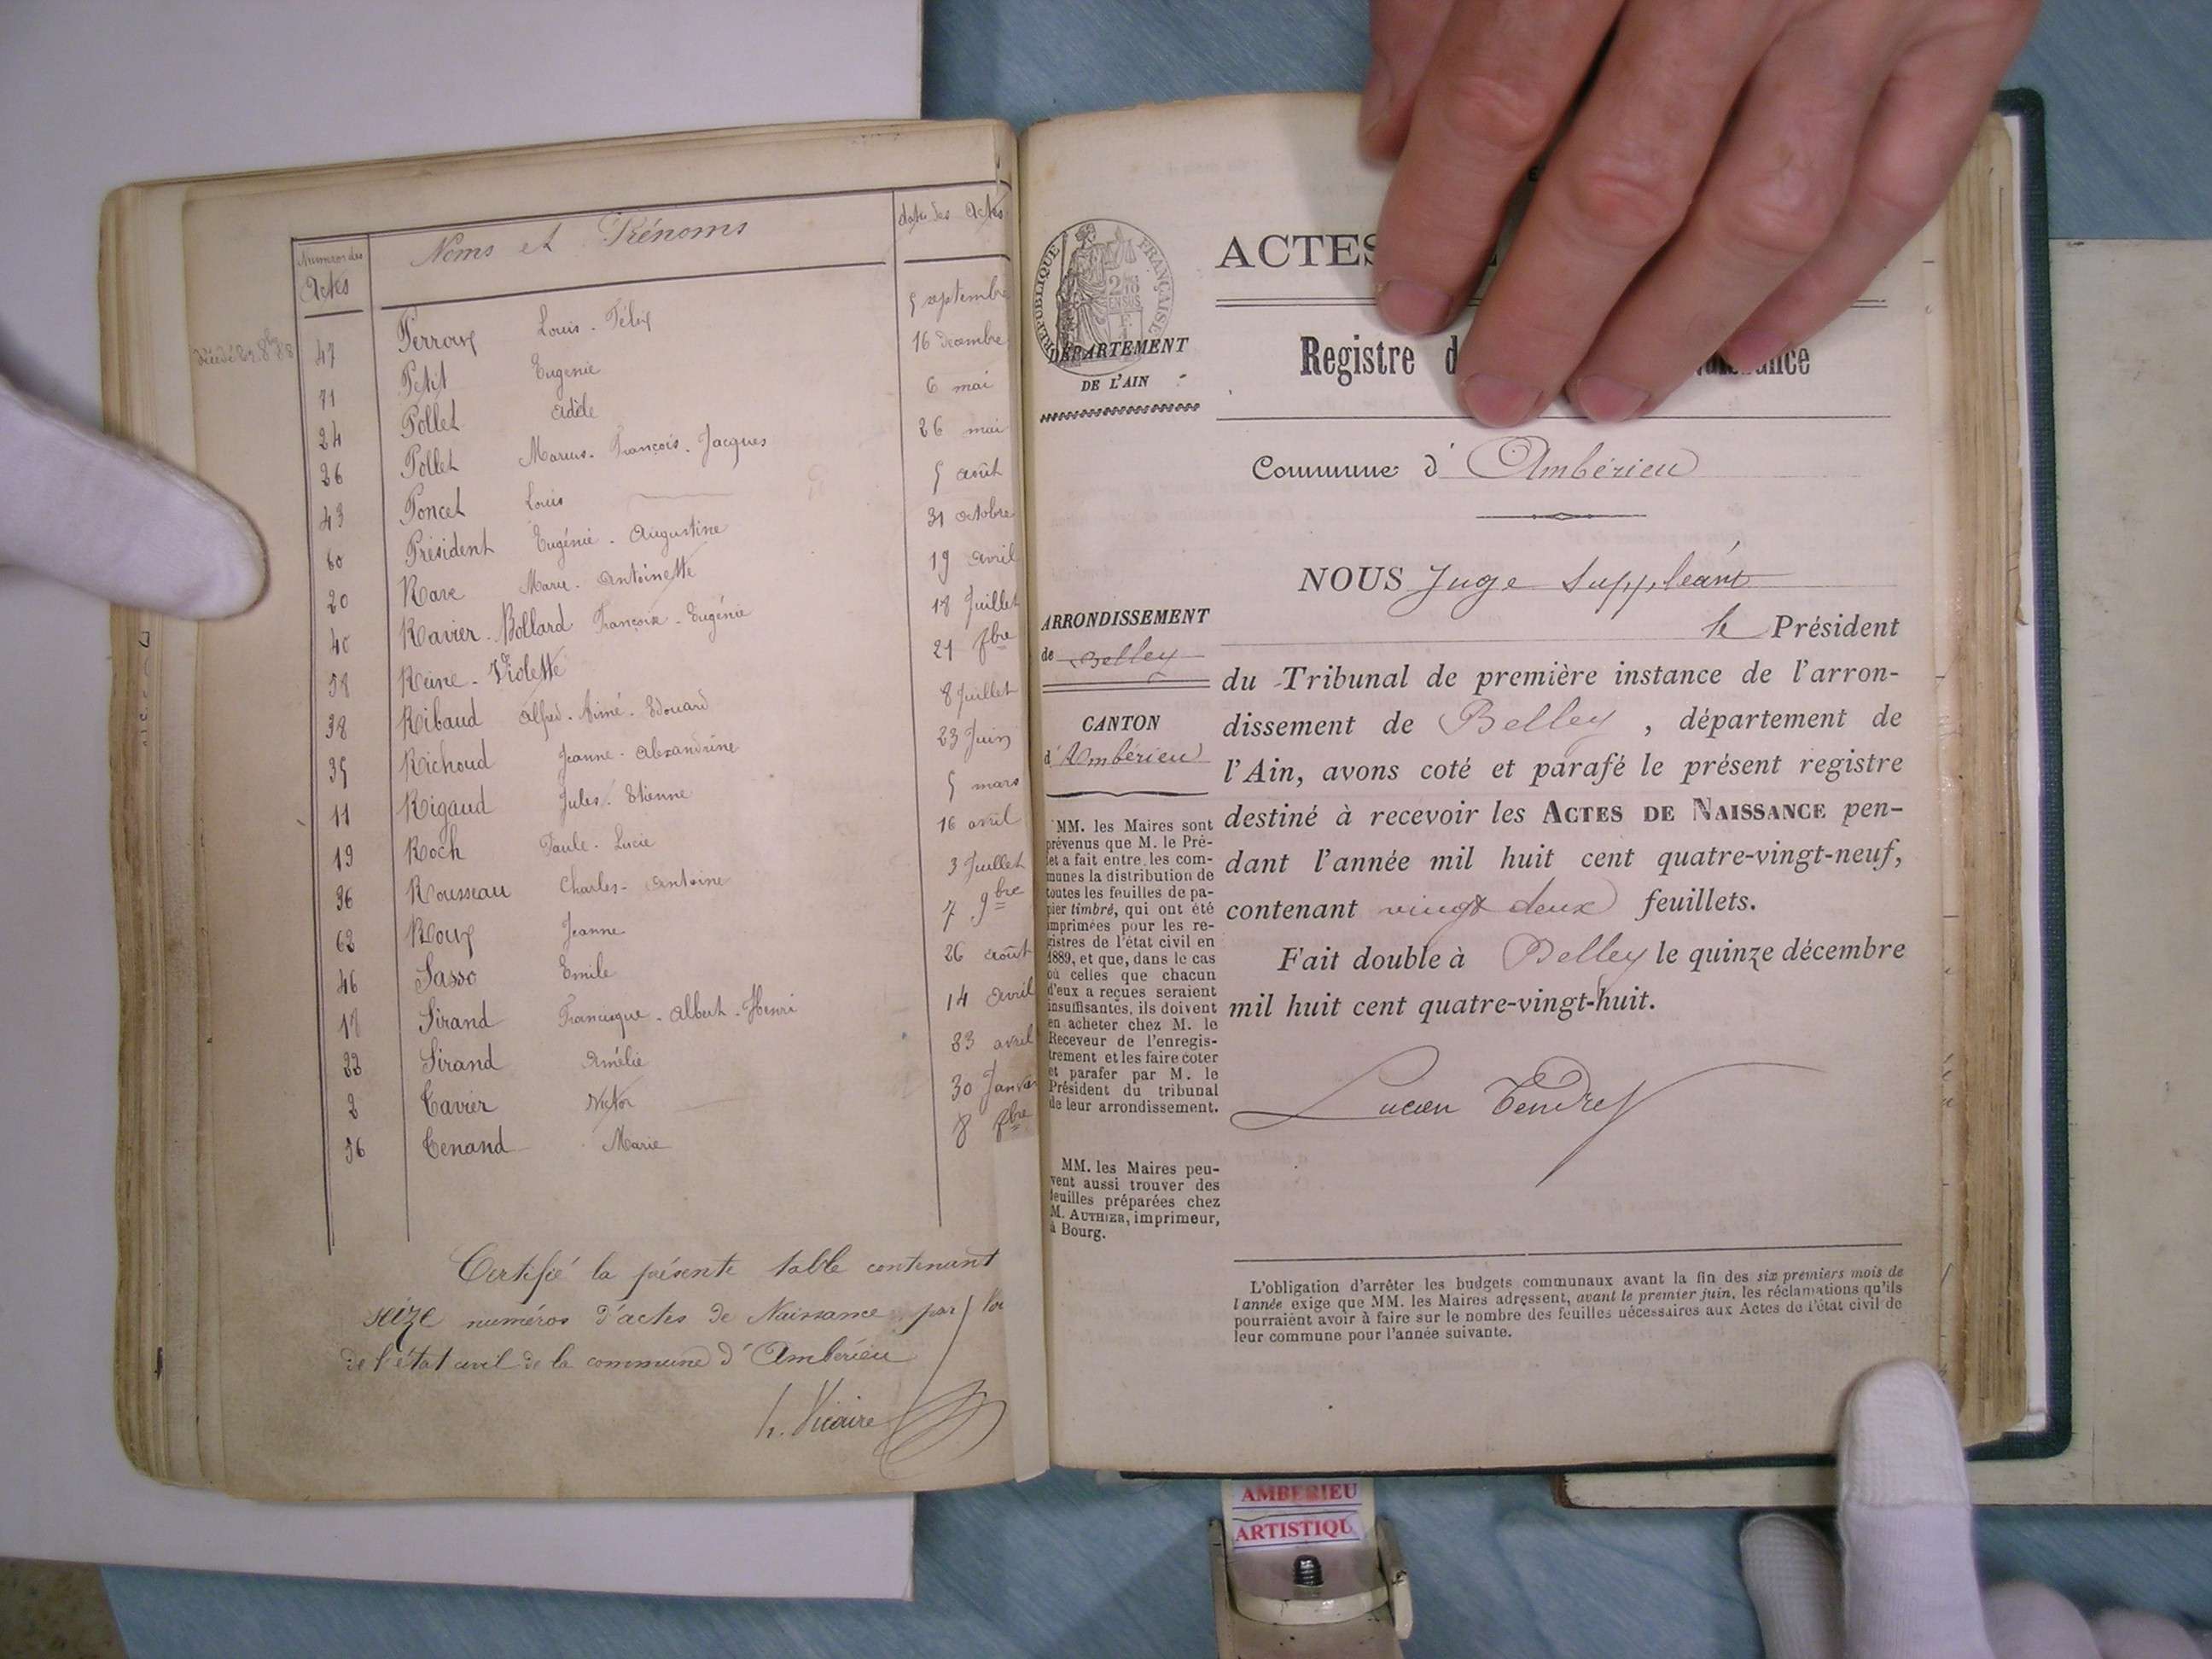 Numéros des Actes | Noms et Prénoms | date des Actes
47 Perroux Louis - Félix 5 septembre
71 Petit Eugénie 16 décembre
24 Pollet Adèle 6 mai
26 Pollet Marius - François - Jacques 26 mai
43 Poncet Louis 5 août
60 Président Eugénie - Augustine 31 octobre
20 Rave Marie - Antoinette 19 avril
40 Ravier - Bollard Françoise - Eugénie 18 Juillet
58 Reine - Violette 21 8bre
38 Ribaud Alfred - Aimé - Edouard 8 Juillet
35 Richoud Jeanne - Alexandrine 23 Juin
11 Rigaud Jules - Etienne 5 mars
19 Roch Paule - Lucie 16 avril
36 Rousseau Charles - Antoine 3 Juillet
62 Roux Jeanne 7 9bre
46 Sasso Emile 26 août
18 Sirand Francisque - Albert - Henri 14 avril
22 Sirand Amélie 23 avril
2 Tavier Victor 30 Janvier
56 Tenand Marie 8 8bre
Certifié la présente table contenant
seize numéros d'actes de Naissance par
de l'état civil de la commune d'Ambérieu
h. Vicaire
RÉPUBLIQUE FRANÇAISE
ACTES
DÉPARTEMENT
DE L'AIN
Registre
Commune d'Ambérieu
NOUS Juge Suppléant
le Président
du Tribunal de première instance de l'arron-
dissement de Belley, département de
l'Ain, avons coté et parafé le présent registre
destiné à recevoir les ACTES DE NAISSANCE pen-
dant l'année mil huit cent quatre-vingt-neuf,
contenant vingt deux feuillets.
Fait double à Belley le quinze décembre
mil huit cent quatre-vingt-huit.
Lucien Tendret
ARRONDISSEMENT
de Belley
CANTON
d'Ambérieu
MM. les Maires sont
prévenus que M. le Pré-
fet a fait entre les com-
munes la distribution de
toutes les feuilles de pa-
pier timbré, qui ont été
imprimées pour les re-
gistres de l'état civil en
1889, et que, dans le cas
où celles que chacun
d'eux a reçues seraient
insuffisantes, ils doivent
en acheter chez M. le
Receveur de l'enregis-
trement et les faire coter
et parafer par M. le
Président du tribunal
de leur arrondissement.
MM. les Maires peu-
vent aussi trouver des
feuilles préparées chez
M. AUTHIER, imprimeur,
à Bourg.
L'obligation d'arrêter les budgets communaux avant la fin des six premiers mois de
l'année exige que MM. les Maires adressent, avant le premier juin, les réclamations qu'ils
pourraient avoir à faire sur le nombre des feuilles nécessaires aux Actes de l'état civil de
leur commune pour l'année suivante.
AMBERIEU
ARTISTIQU